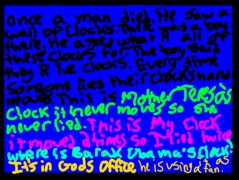 Once a man died. He saw a
wall of clocks. there was a boy
there. He asked what R all of
these clocks for. The boy said
they R lie clocks. Every time
someone lies their clocks hand
moves. This is Mother Teresa's
Clock it never moves so she
never lied. This is my clock
it moved 2 times so I lied twice
where is Barak Obama's Clock?
It's in Gods Office he is using it as
a fan.